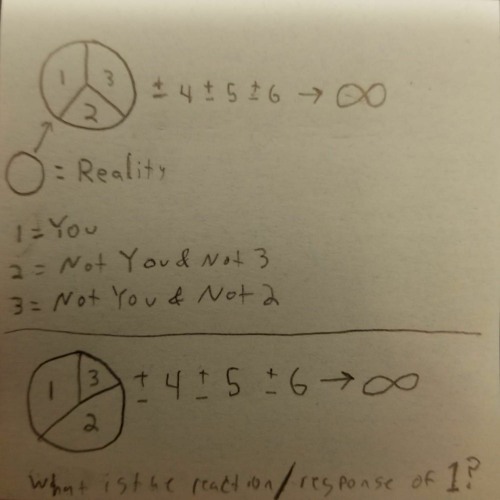 1 3 2 ± 4 ± 5 ± 6 → ∞
○ = Reality
1 = You
2 = Not You & Not 3
3 = Not You & Not 2
1 3 2 ± 4 ± 5 ± 6 → ∞
What is the reaction/response of 1?